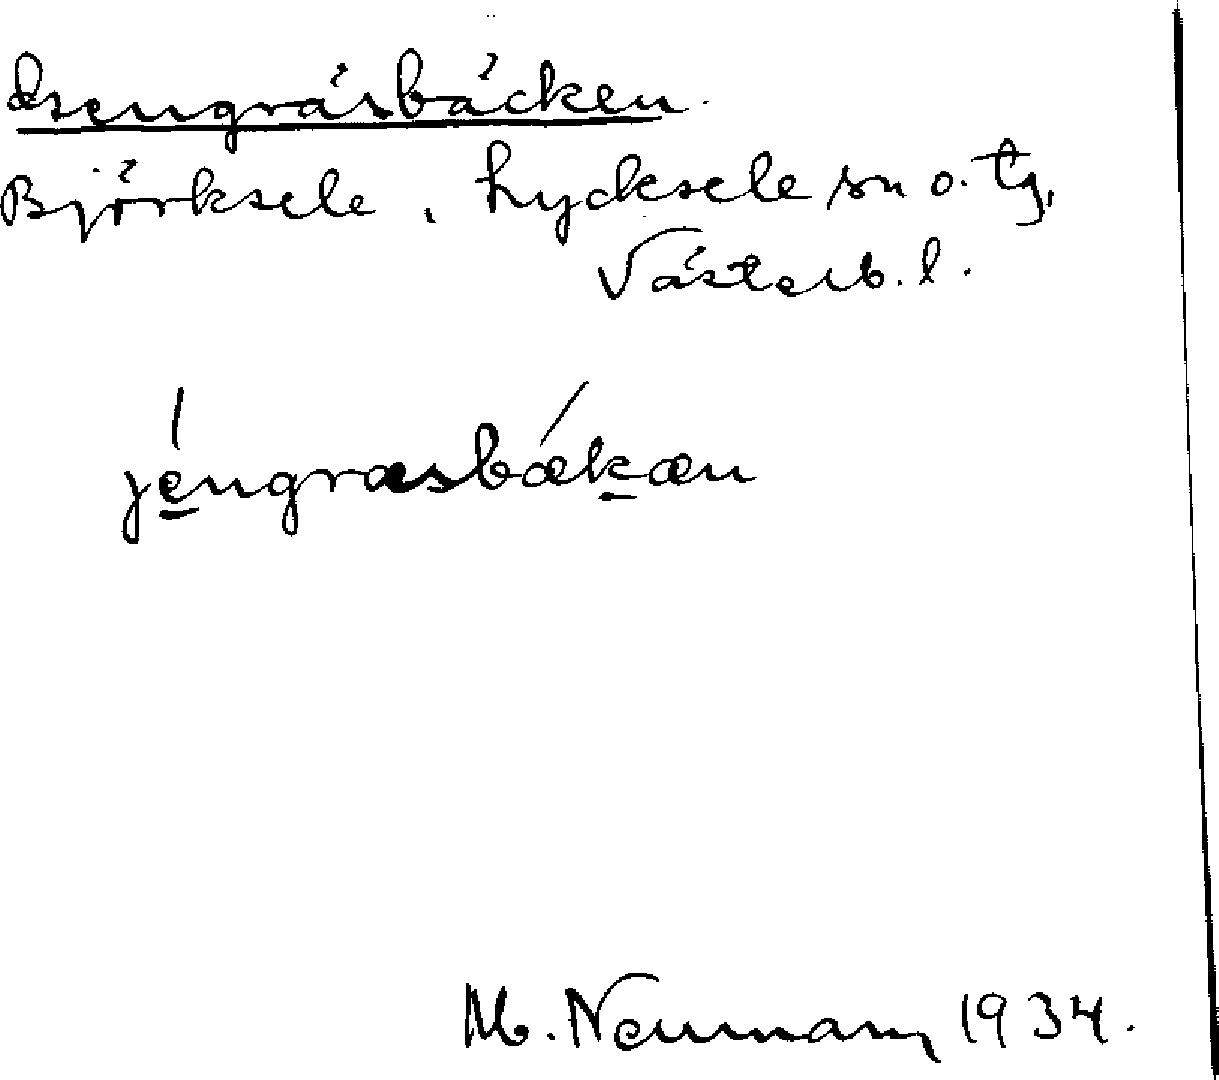 Isengräsbäcken.
Björksele, Lycksele sn o. tg,
Västerb. l.
jengræsbækæn
M. Neumann 1934.